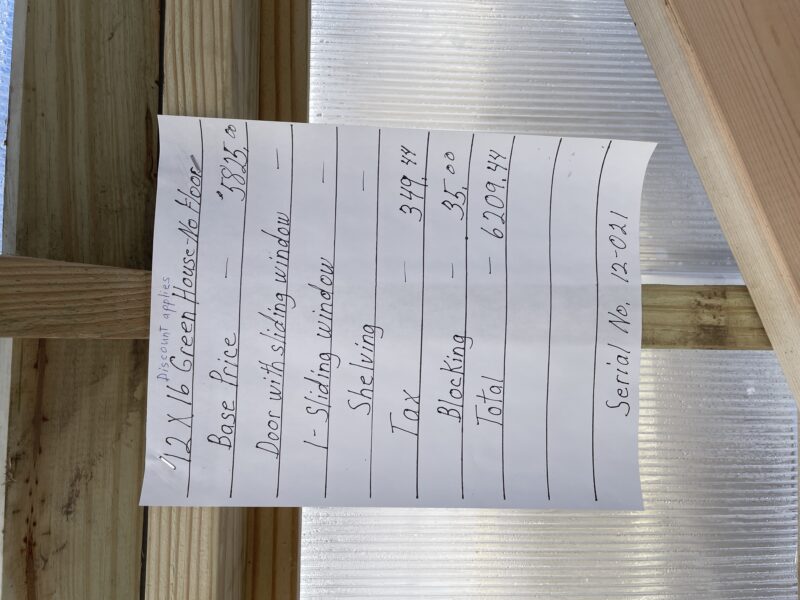 Discount applies
12 X 16 Green House-No Floor
Base Price — 5825.00
Door with sliding window —
1- Sliding window —
Shelving —
Tax — 349.44
Blocking — 35.00
Total — 6209.44
Serial No. 12-021